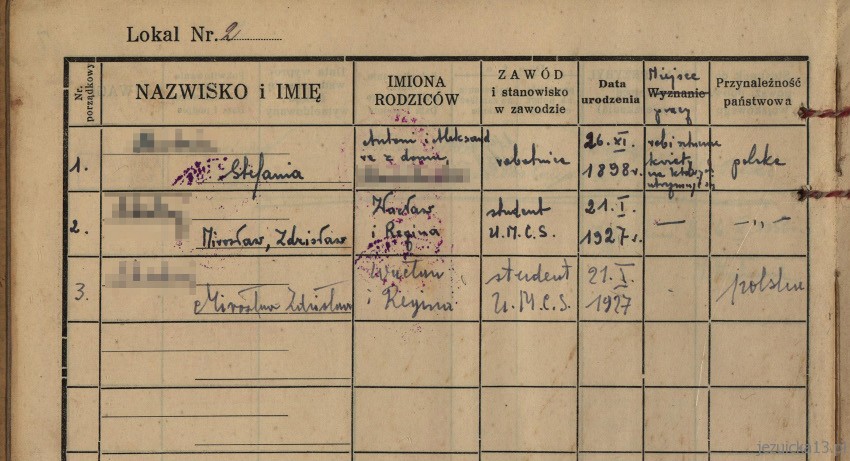 Lokal Nr. 2
Nr. porządkowy
NAZWISKO i IMIĘ
IMIONA
RODZICÓW
ZAWÓD
i stanowisko
w zawodzie
Data
urodzenia
Miejsce
Wyznanie
pracy
Przynależność
państwowa
1.
Stefania
Antoni i Aleksand
ra z domu
robotnica
26. XI.
1898 r.
robi sztuczne
kwiaty
polska
2.
Mirosław, Zdzisław
Wacław
i Regina
student
U.M.C.S.
21. I.
1927 r.
—
—„—
3.
Mirosław Zdzisław
Wacław
i Regina
student
U.M.C.S.
21. I.
1927
-
polska
jezuicka13.pl